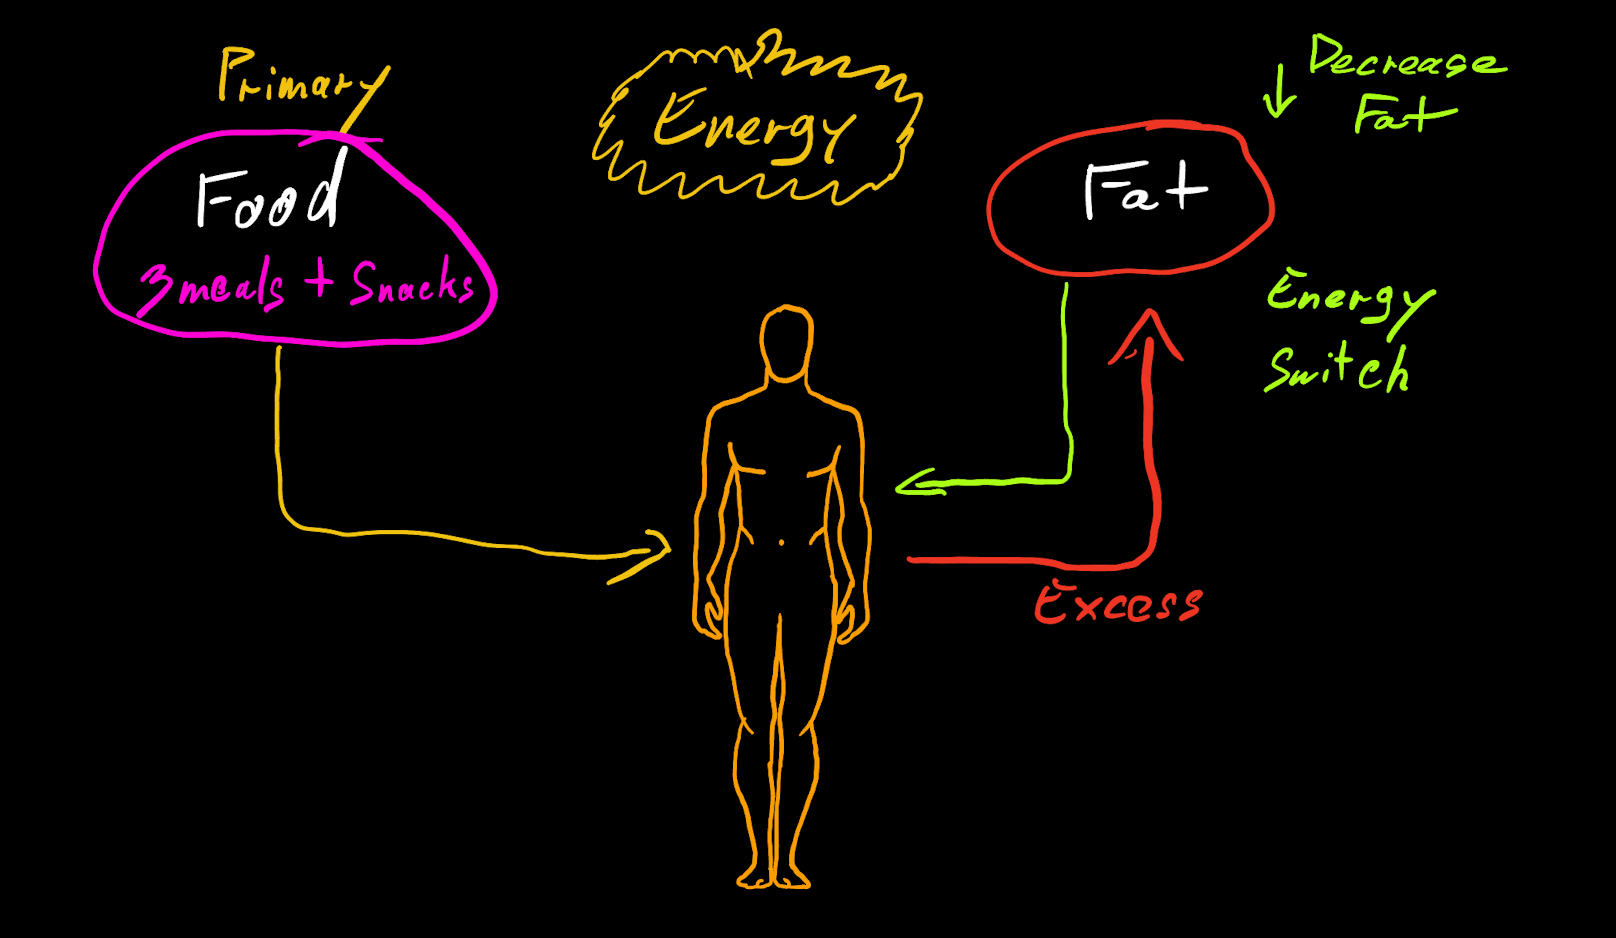 Primary
Food
3 meals + Snacks
Energy
↓ Decrease
Fat
Fat
Energy
Switch
Excess